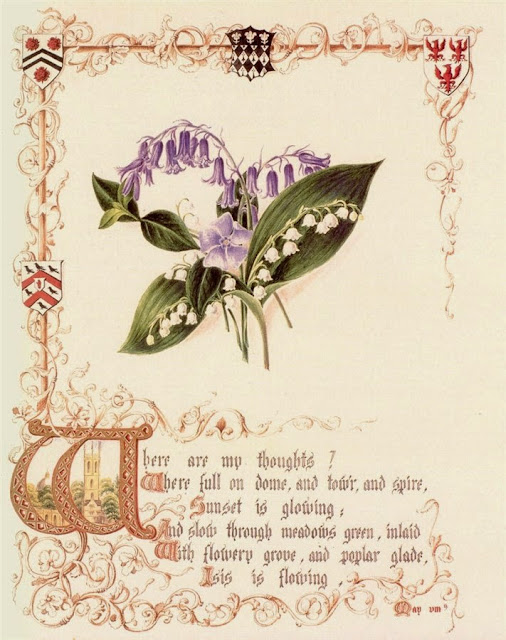 Where are my thoughts?
Where full on dome, and tow'r, and spire,
Sunset is glowing;
And slow through meadows green, inlaid
With flowery grove, and poplar glade,
Isis is flowing.
May viii